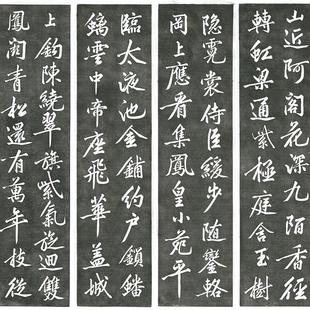 山近阿閣花深九陌香徑
轉虹梁通紫極庭含玉樹
隐霓裳侍臣緩步随鑾輅
岡上應看集鳳皇小苑平
臨太液池金鋪約户鎖蟠
螭雲中帝座飛華蓋城
上鈎陳繞翠旗紫氣旋迴雙
鳳闕青松還有萬年枝從